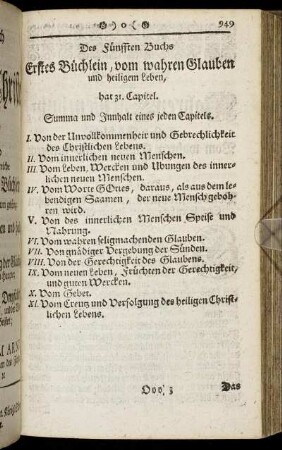 949
Des Fünfften Buchs
Erstes Büchlein, vom wahren Glauben
und heiligem Leben,
hat 31. Capitel.
Summa und Innhalt eines jeden Capitels.
I. Von der Unvollkommenheit und Gebrechlichkeit
des Christlichen Lebens.
II. Vom innerlichen neuen Menschen.
III. Vom Leben, Wercken und Ubungen des inner-
lichen neuen Menschen.
IV. Vom Worte GOttes, daraus, als aus dem le-
bendigen Saamen, der neue Mensch geboh-
ren wird.
V. Von des innerlichen Menschen Speise und
Nahrung.
VI. Vom wahren seligmachenden Glauben.
VII. Von gnädiger Vergebung der Sünden.
VIII. Von der Gerechtigkeit des Glaubens.
IX. Vom neuen Leben, Früchten der Gerechtigkeit,
und guten Wercken.
X. Vom Gebet.
XI. Vom Creutz und Verfolgung des heiligen Christ-
lichen Lebens.
Ooo 3 Das